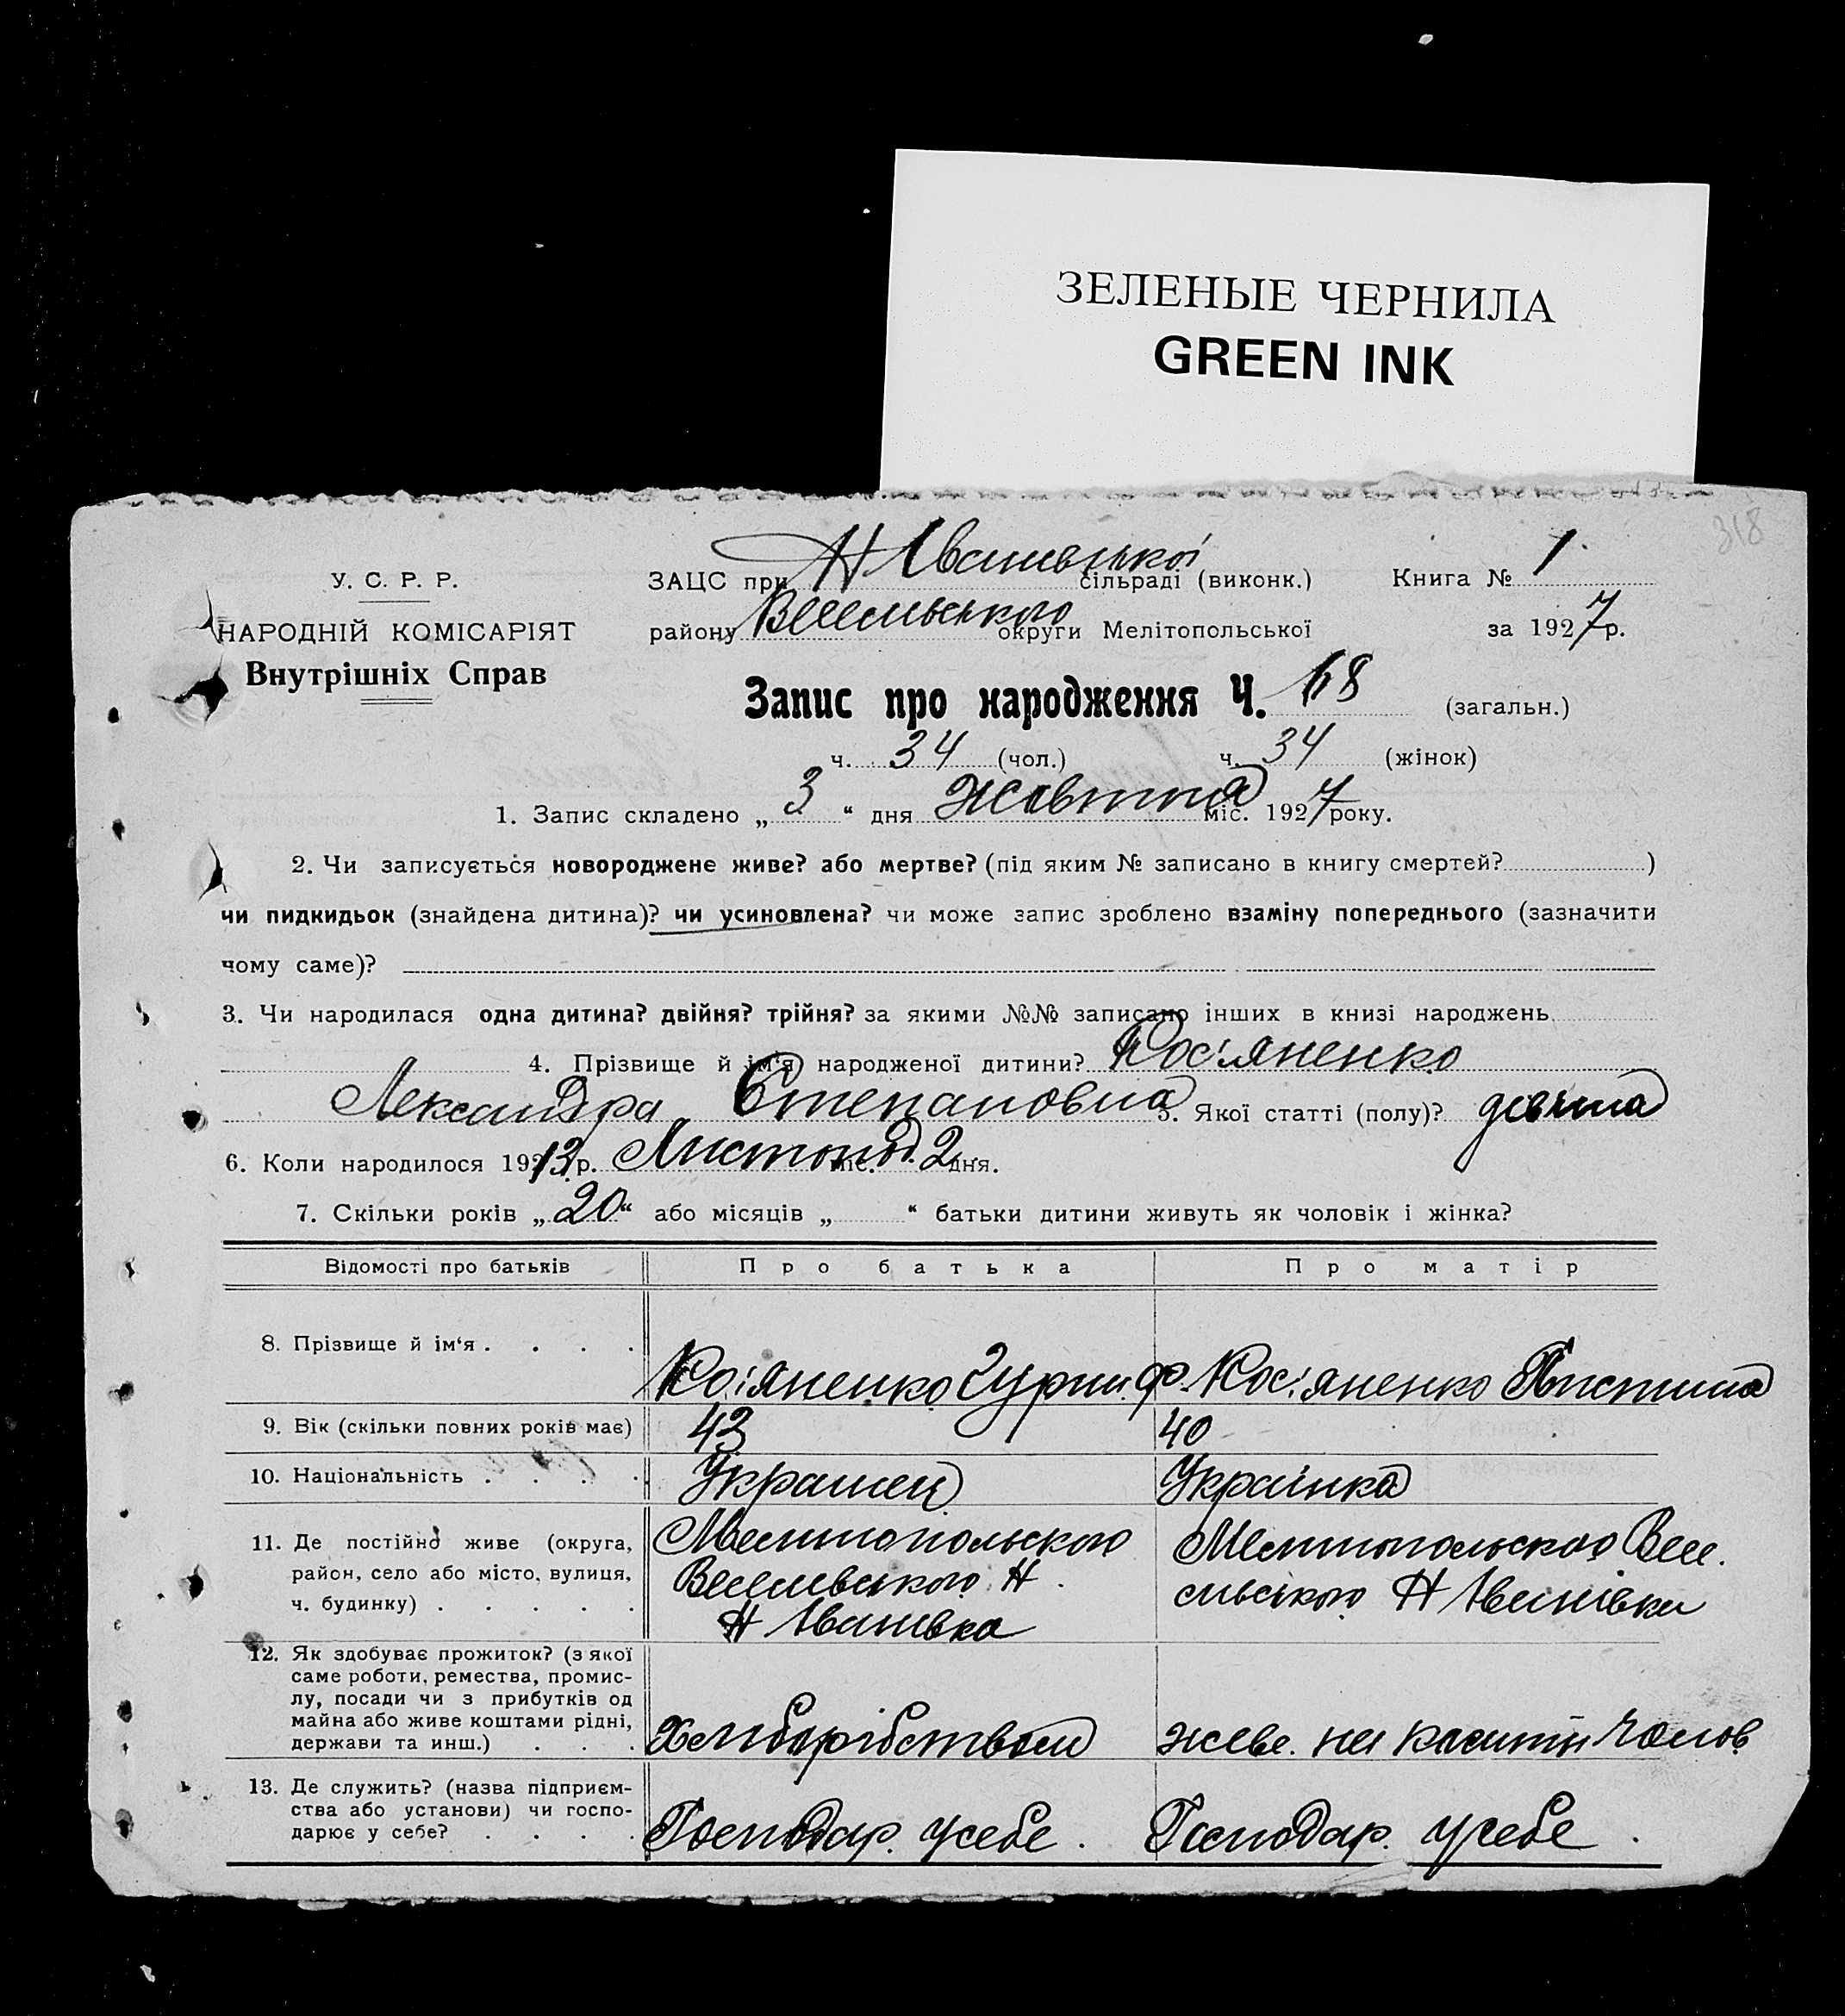 ЗЕЛЕНЫЕ ЧЕРНИЛА
GREEN INK
318
У. С. Р. Р.
НАРОДНІЙ КОМІСАРІЯТ
Внутрішніх Справ
ЗАЦС при Н Іванівської сільраді (виконк.)
району Веселівського округи Мелітопольської
Книга № 1.
за 1927 р.
Запис про народження Ч. 68 (загальн.)
ч. 34 (чол.) ч. 34 (жінок)
1. Запис складено „ 3 “ дня Жовтня міс. 1927 року.
2. Чи записується новороджене живе? або мертве? (під яким № записано в книгу смертей? )
чи пидкидьок (знайдена дитина)? чи усиновлена? чи може запис зроблено взаміну попереднього (зазначити
чому саме)?
3. Чи народилася одна дитина? двійня? трійня? за якими №№ записано інших в книзі народжень
4. Прізвище й ім‘я народженої дитини? Кос'яненко
Лександра Степановна 5. Якої статті (полу)? дівчина
6. Коли народилося 1913 р. Листопад. міс. 2 дня.
7. Скільки років „ 20 “ або місяців „ “ батьки дитини живуть як чоловік і жінка?
Відомості про батьків Про батька Про матір
8. Прізвище й ім‘я . . . . Кос'яненко Ф. Кос'яненко Христина
9. Вік (скільки повних років має) 43 40
10. Національність . . . . Українец Українка
11. Де постійно живе (округа,
район, село або місто, вулиця,
ч. будинку) . . . . .
Мелітопольского
Веселівського Н
Н Іванівка
Мелітопольского Весе.
лівського Н Іванівка
12. Як здобуває прожиток? (з якої
саме роботи, ремества, промис-
лу, посади чи з прибутків од
майна або живе коштами рідні,
держави та инш.) . . .
Хліборібством
живе. на кошти Чолов
13. Де служить? (назва підприєм-
ства або установи) чи госпо-
дарює у себе? . . . .
Господар. усебе.
Господар. усебе.